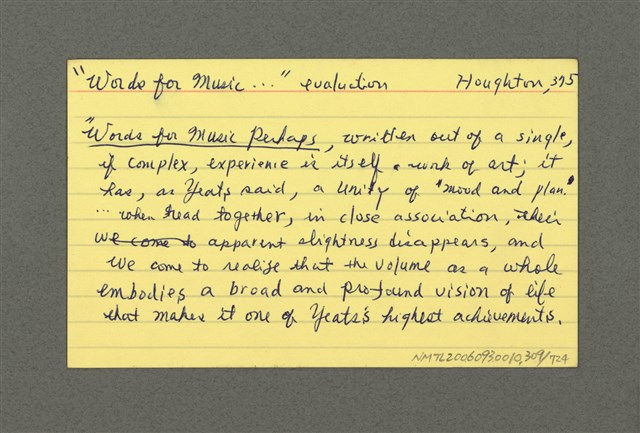 "Words for Music ..." evaluation Houghton, 375
"Words for Music Perhaps, written out of a single,
if complex, experience is itself a work of art; it
has, as Yeats said, a unity of "mood and plan."
... when read together, in close association, their
we come to apparent slightness disappears, and
we come to realize that the volume as a whole
embodies a broad and profound vision of life
that makes it one of Yeats's highest achievements.
NMTL20060930010,309/724